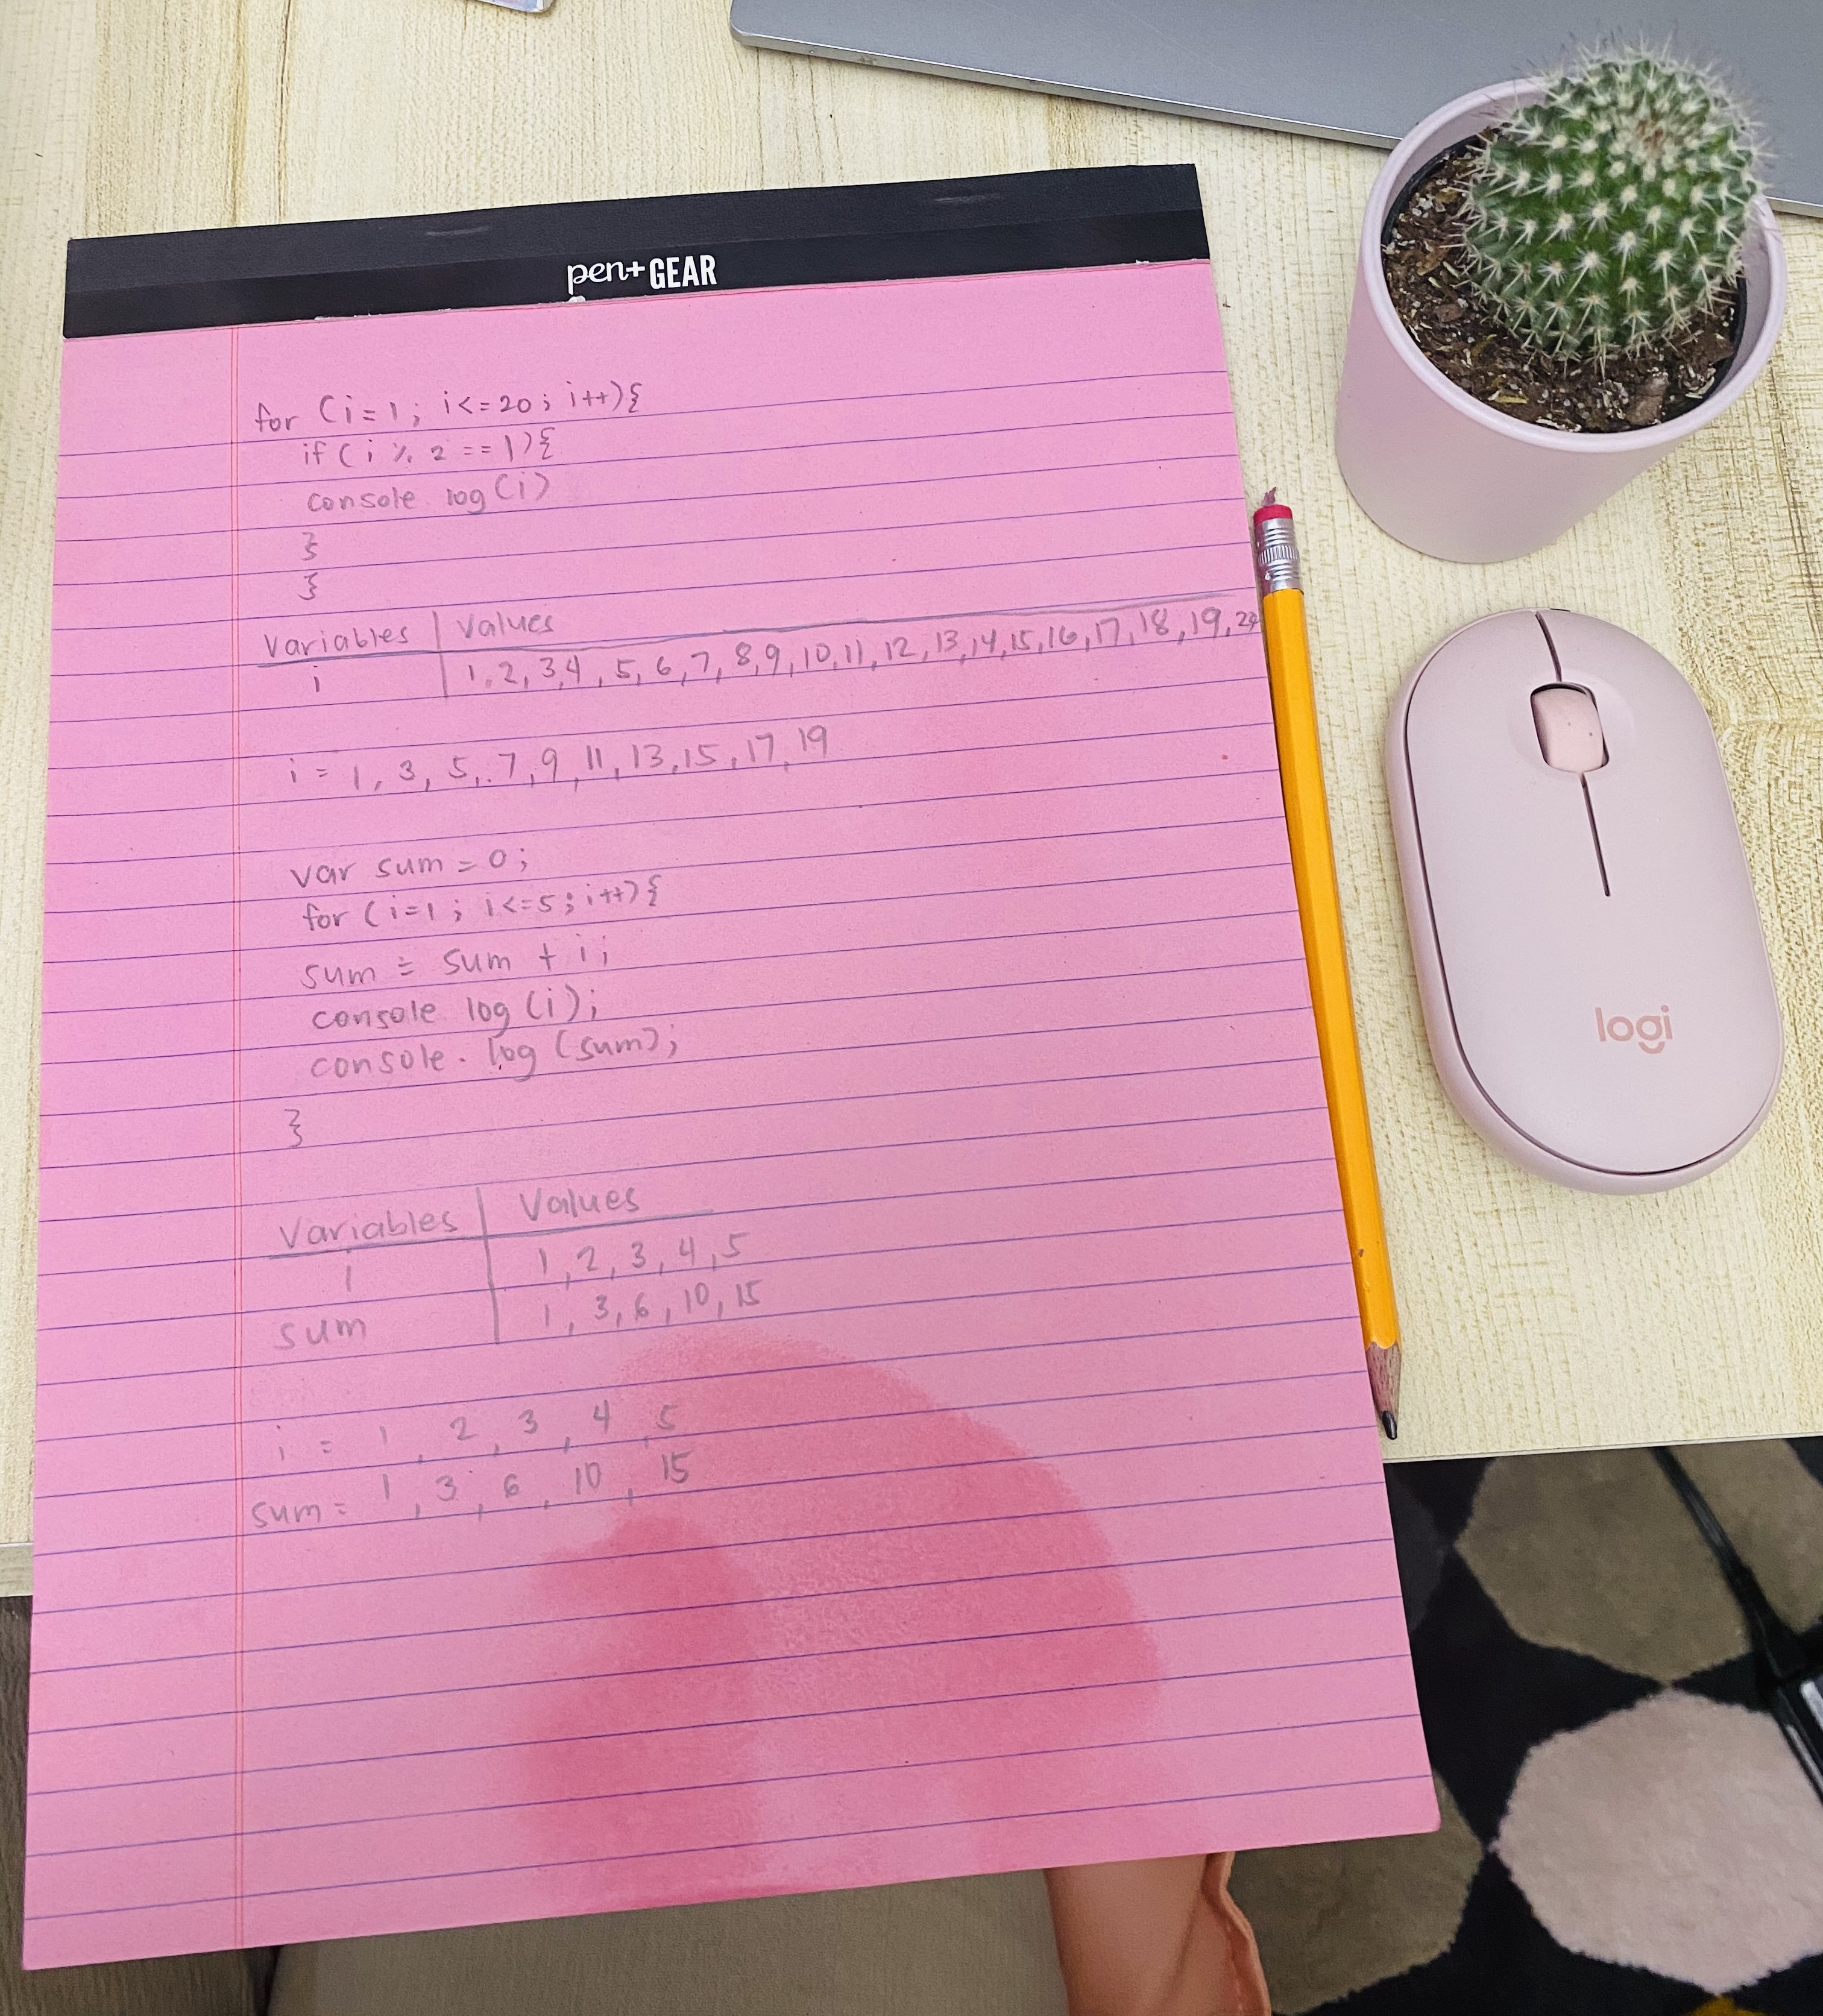 pen+GEAR
for (i=1; i<=20; i++){
if (i % 2 == 1){
console log(i)
}
}
Variables | Values
i | 1, 2, 3, 4, 5, 6, 7, 8, 9, 10, 11, 12, 13, 14, 15, 16, 17, 18, 19,
i = 1, 3, 5, 7, 9, 11, 13, 15, 17, 19
var sum = 0;
for (i=1; i<=5; i++){
sum = sum + i;
console log(i);
console.log(sum);
}
Variables | Values
i | 1, 2, 3, 4, 5
sum | 1, 3, 6, 10, 15
i = 1, 2, 3, 4, 5
sum = 1, 3, 6, 10, 15
logi